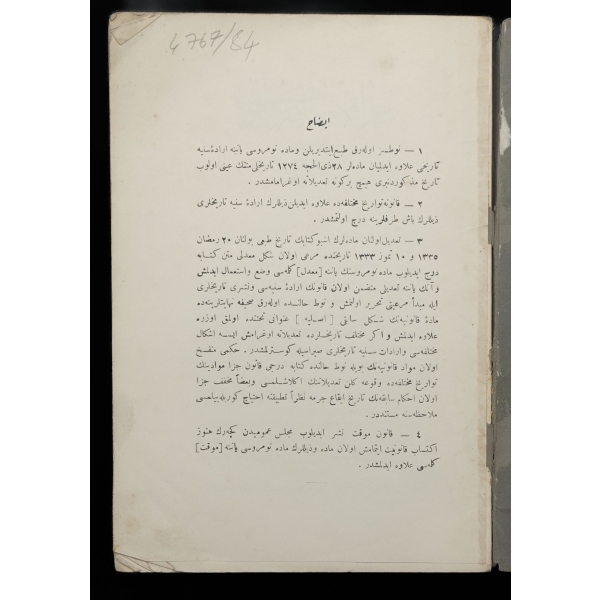 4767/84
ایضاح
١ — نوطسز اوله‌رق طبع ایتدیریلن وماده نومروسی یاننه ارادۀ سنیه
تاریخی علاوه ایدلمیان ماده‌لر ٢٨ ذی الحجه ١٢٧٤ تاریخلی متنك عینی اولوب
تاریخ مذكوردنبری هیچ بركونه تعدیلاته اوغرامامشدر .
٢ — قانونه تواریخ مختلفه‌ده علاوه ایدیلن ذیللرك ارادۀ سنیه تاریخلری
ذیللرك باش طرفلرینه درج اولنمشدر .
٣ — تعدیل اولنان ماده‌لرك اشبو كتابك تاریخ طبعی بولنان ٢٠ رمضان
١٣٣٥ و ١٠ تموز ١٣٣٣ تاریخنده مرعی اولان شكل معدلی متن كتابه
درج ایدیلوب ماده نومروسنك یاننه [معدل] كلمه‌سی وضع واستعمال ایدلمش
و آنك یاننه تعدیلی متضمن اولان قانونك ارادۀ سنیه‌سی ونشری تاریخلری
ایله مبدأ مرعیتی تحریر اولنمش و نوط حالنده اوله‌رق صحیفه نهایتلرینه‌ده
مادۀ قانونیه‌نك شكل سابقی [ اصلیه ] عنوانی تحتنده اولمق اوزره
علاوه ایدلمش و اكر مختلف تاریخلرده تعدیلاته اوغرامش ایسه اشكال
مختلفه‌سی وارادات سنیه تاریخلری صیراسیله كوسترلمشدر . حكمی منفسخ
اولان مواد قانونیه‌نك بویله نوط حالنده كتابه درجی قانون جزا موادینك
تواریخ مختلفه‌ده وقوعه كلن تعدیلاتنك اكلاشلمسی وبعضاً مخفف جزا
اولان احكام سابقه‌نك تاریخ ایقاع جرمه نظراً تطبیقنه احتیاج كوریله‌بیلمسی
ملاحظه‌سنه مستنددر .
٤ — قانون موقت نشر ایدیلوب مجلس عمومیدن كچه‌رك هنوز
اكتساب قانونیت ایتمامش اولان ماده وذیللرك ماده نومروسی یاننه [موقت]
كلمه‌سی علاوه ایدلمشدر .